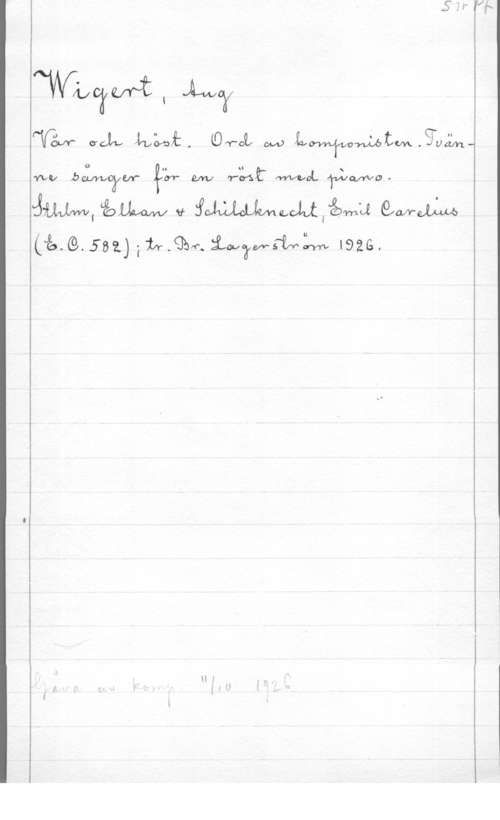 S 1r Pf
Wigert, Aug
Vår och höst. Ord av komponisten. Tvän-
ne sånger för en röst med piano.
Sthlm, Elkan & Schildknecht, Emil Carelius
(E.C. 582); tr. Br. Lagerström 1926.
Gåva av komp. 11/10 1926